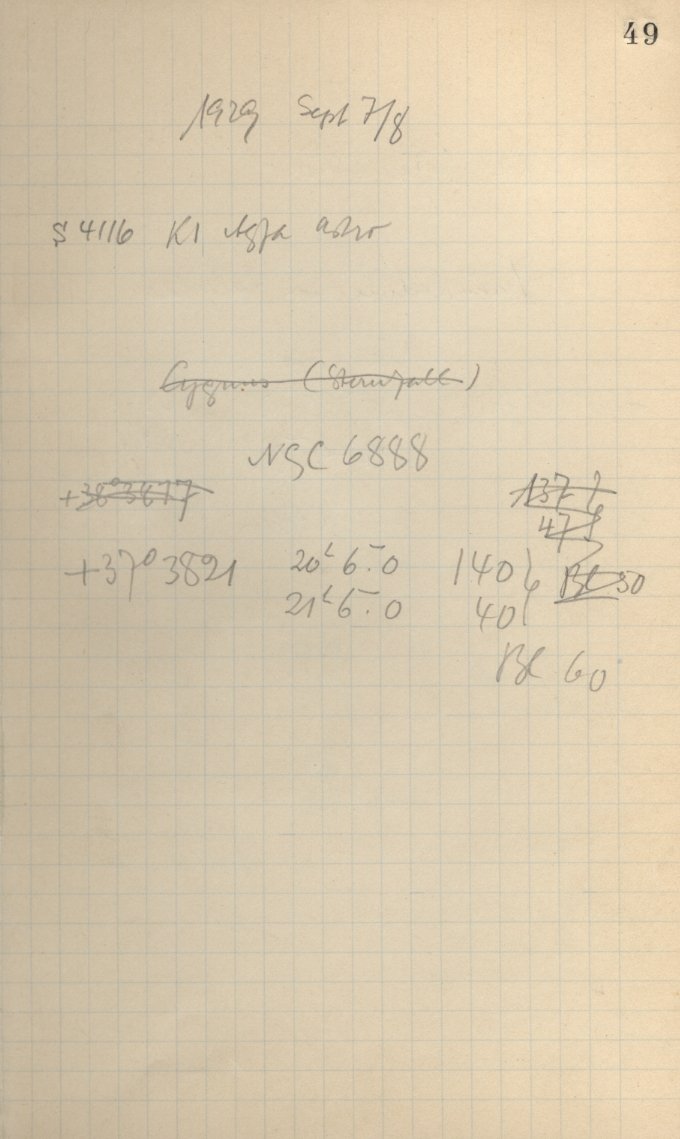 49
1929 Sept 7/8
S 4116 Kl Agfa Astro
Cygnus (Sternfall)
NGC 6888
+38°3877 137
47
+37°3821 20h 6m.0 140 Bl 50
21h 6m.0 40
Bl 60